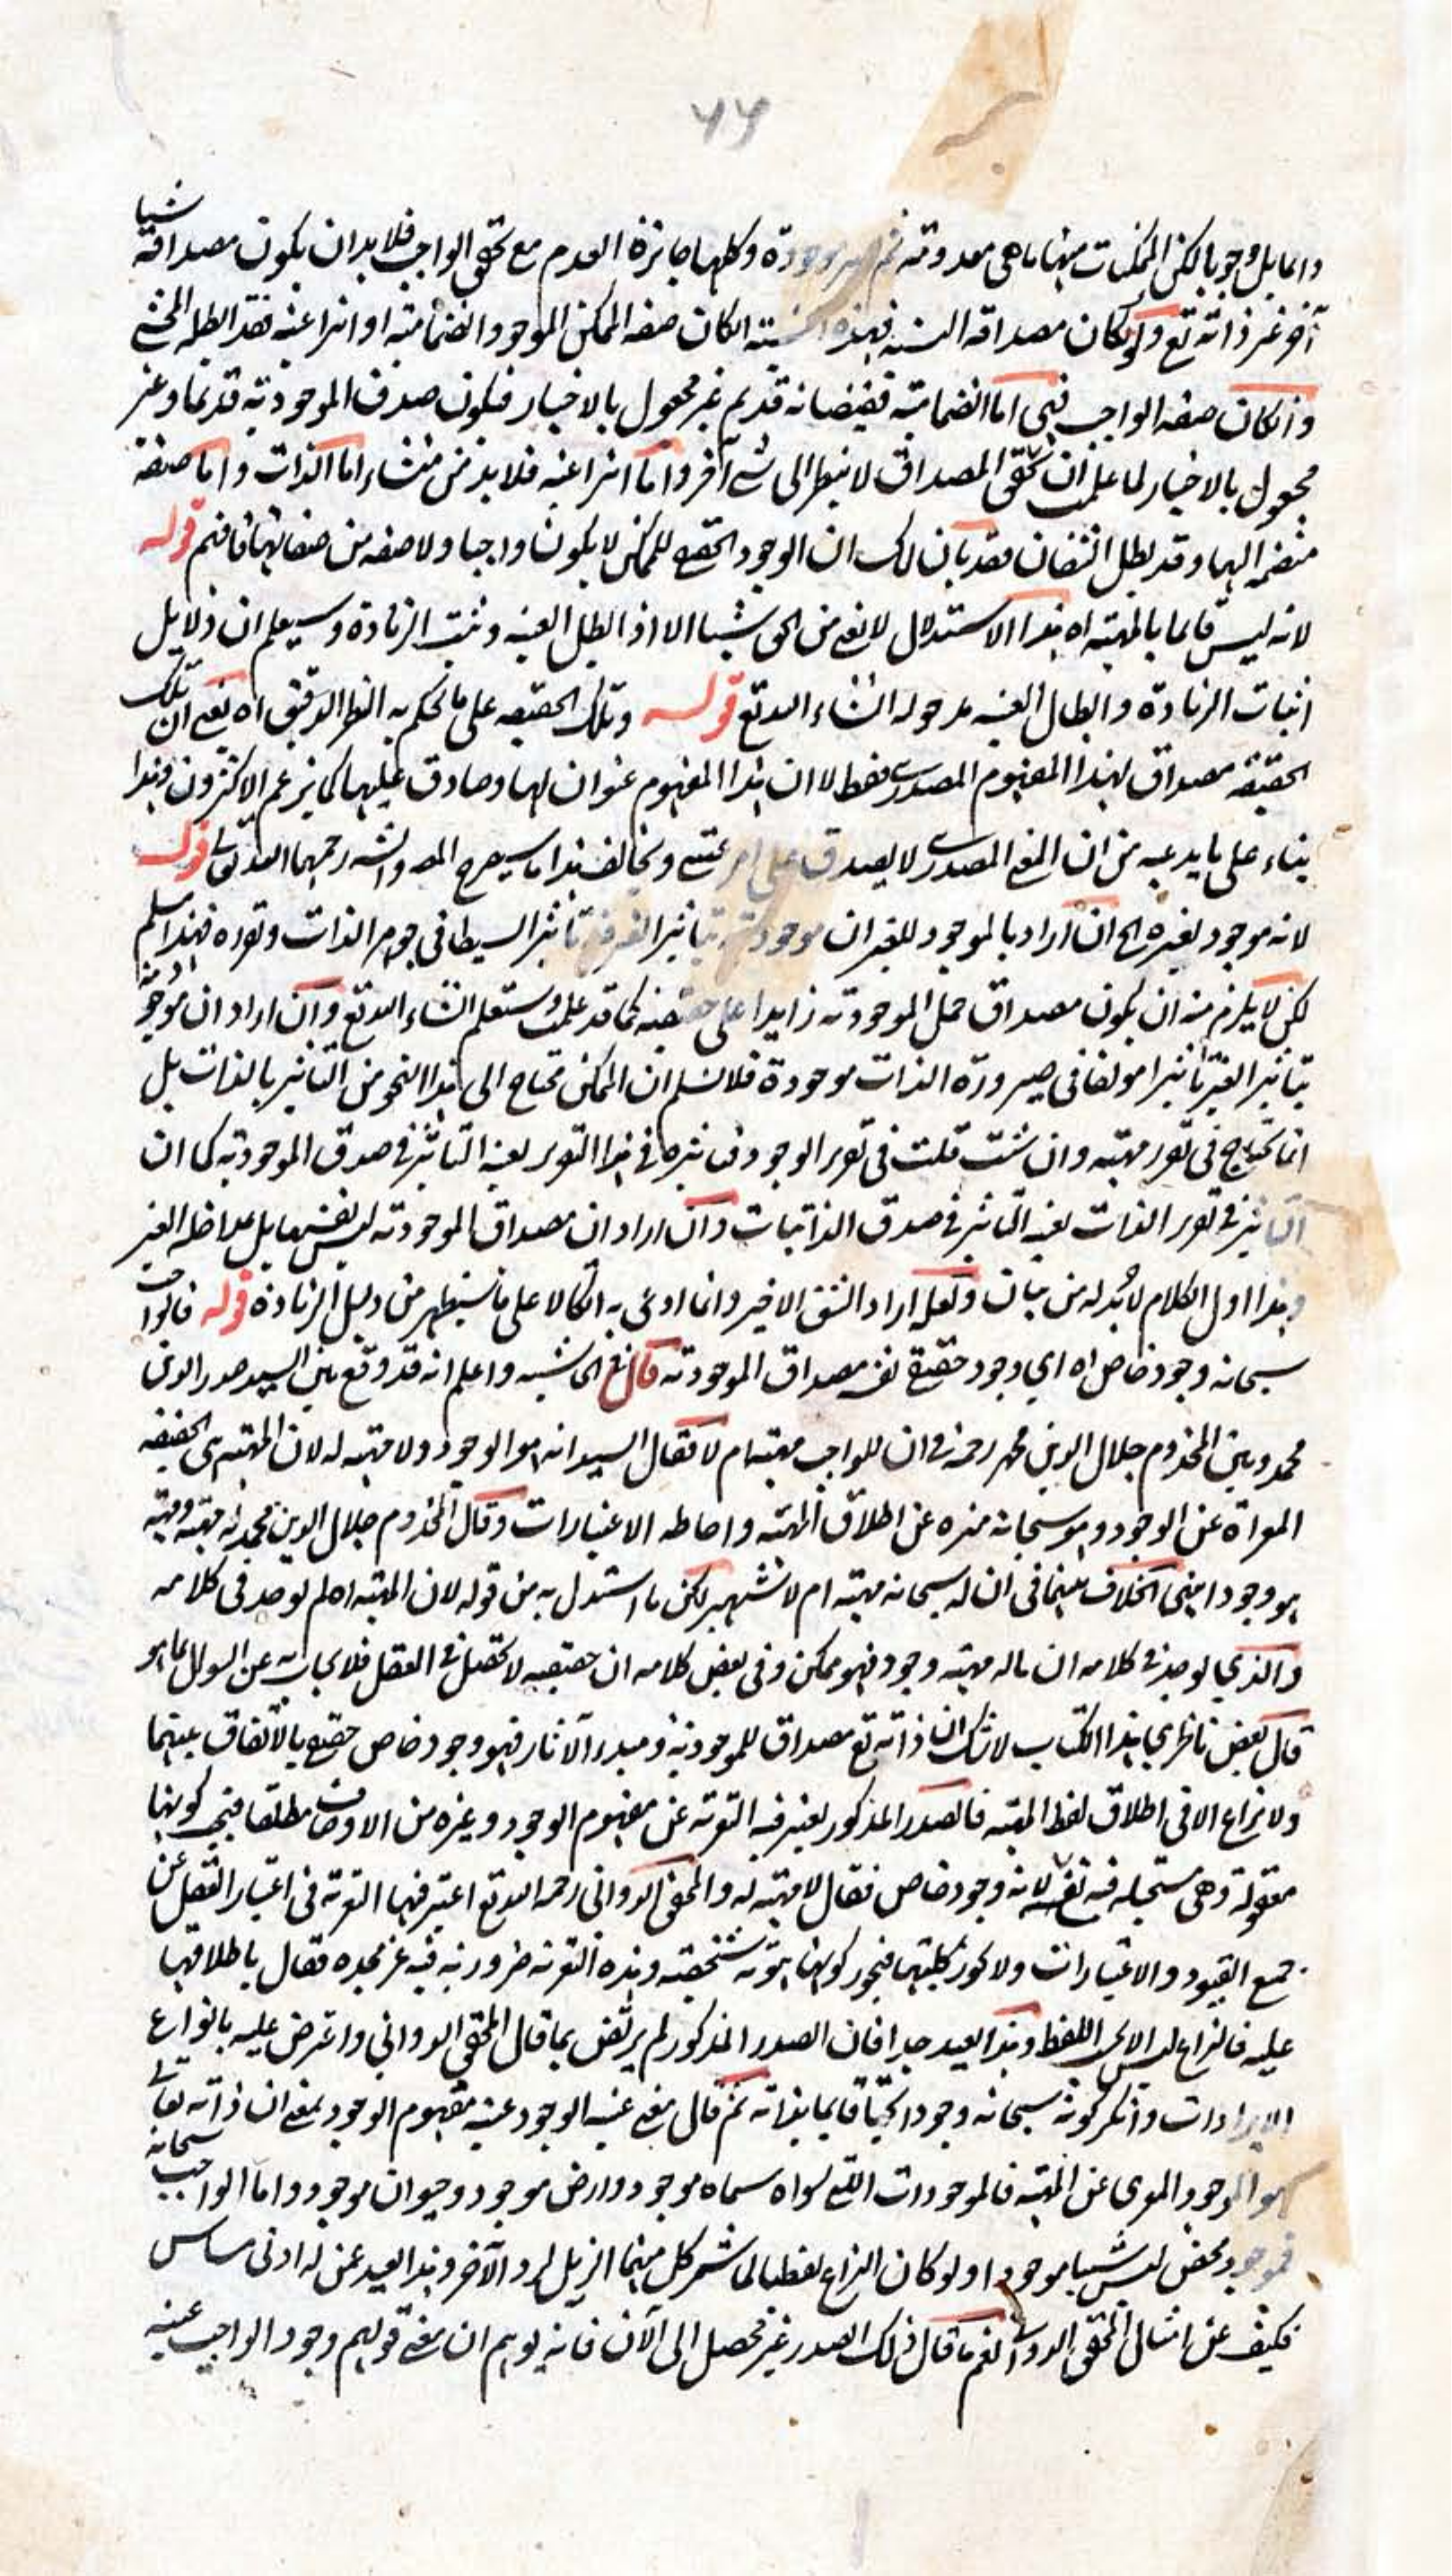 ٧٦
شيا
دائما بل وجوبا لكن الممكنات منها ما هى معدومة ثم موجودة وكلها جائزة العدم مع تحقق الواجب فلا بد ان يكون مصداقه
آخر غير ذاته تع ولو كان مصداقه النسبة فهذه النسبة ان كان صفة الممكن الموجود انضمامية او انتزاعية فقد ابطله المحشى
وان كان صفة الواجب فهى اما انضمامية فيفيضانه قديم غير مجعول بالاختيار فيكون صدق الموجودية قديما وغير
مجعول بالاختيار لما علمت ان تحقق المصداق لا ينظر الى شئ آخر واما انتزاعية فلا بد من منشاء اما الذات واما صفة
منضمة اليها وقد بطل الشقان فقد بان لك ان الوجود الحقيقى للممكن لا يكون واجبا ولا صفة من صفاتها فافهم قوله
لانه ليس قائما بالمهية اه هذا الاستدلال لا يغنى من الحق شيا الا اذا ابطل العينية وثبت الزيادة وسيعلم ان دلايل
اثبات الزيادة وابطال العينية مدخولة انشاء الله تع قوله وتلك الحقيقة على ما يحكم به النظر الدقيق اه يعنى ان تلك
الحقيقة مصداق لهذا المفهوم المصدرى فقط لا ان هذا المفهوم عنوان لها وصادق عليها كما يزعم الاكثرون وهذا
بناء على ما يدعيه من ان المعنى المصدرى لا يصدق على امر عينى ويخالف هذا ما سيصرح المص والشه رحمهما الله تعالى قوله
لانه موجود بغيره الح ان اراد بالموجود للغير ان موجوديته بتاثير الغير فيه تاثيرا بسيطا فى جوهر الذات وتقرره فهذا مسلم
لكن لا يلزم منه ان يكون مصداق حمل الموجودية زايدا على حقيقته كما قد علمت وستعلم انشاء الله تع وان اراد ان موجوديته
بتاثير الغير تاثيرا مولفا فى صيرورة الذات موجودة فلا نسلم ان الممكن محتاج الى هذا النحو من التاثير بالذات بل
انما يحتاج فى تقرر مهيته وان شئت قلت فى تقرر الوجود وتاثيره فى هذا التقرر بعينه التاثير فى صدق الموجودية كما ان
التاثير فى تقرر الذات بعينه التاثير فى صدق الذاتيات وان اراد ان مصداق الموجودية ليس نفسها بل بملاحظة الغير
وهذا اول الكلام لا بد له من بيان ولعله اراد الشق الاخير وانما ادعى به اتكالا على ما سيظهر من دليل الزيادة قوله فالواجب
سبحانه وجود خاص اه اى وجود حقيقى نفسه مصداق الموجودية قال فى الحاشية واعلم انه قد وقع بين السيد صدر الدين
محمد وبين المخدوم جلال الدين محمد رحمه فى ان للواجب مهية ام لا فقال السيد انه هو الوجود ولا مهية له لان المهية هى الحقيقة
المعراة عن الوجود وهو سبحانه منزه عن اطلاق المهية واحاطة الاعتبارات وقال المخدوم جلال الدين محمد له مهية ومهيته
هو وجود امنى الخلاف بينهما فى ان له سبحانه مهية ام لا شهير لكن ما استدل به من قوله لان المهية اه لم يوجد فى كلامه
والذى يوجد فى كلامه ان ما له مهية وجود فهو ممكن وفى بعض كلامه ان حقيقته لا تحصل فى العقل فلا يجاب به عن السوال بما هو
قال بعض ناظرى هذا الكتاب لا شك ان ذاته تع مصداق للموجودية ومبدء الآثار فهو وجود خاص حقيقى بالاتفاق بينهما
ولا نزاع الا فى اطلاق لفظ المهية فالصدر المذكور يعتبر فيه التعرية عن مفهوم الوجود وغيره من الاوصاف مطلقا فيجب كونها
معقولة وهى مستحيلة فيه تع لانه وجود خاص فقال لا مهية له والمحقق الدوانى رحمه الله تع اعتبر فيها التعرية فى اعتبار العقل عن
جميع القيود والاعتبارات ولا يجوز كليتها فيجوز كونها هوية شخصية وهذه التعرية ضرورية فيه عز مجده فقال باطلاقها
عليه فالنزاع ليس الا فى اللفظ وهذا بعيد جدا فان الصدر المذكور لم يرتض بما قال المحقق الدوانى واعترض عليه بانواع
الايرادات وانكر كونه سبحانه وجودا بحتا قايما بذاته ثم قال معنى عينية الوجود عينية مفهوم الوجود بمعنى ان ذاته تعالى
هو الموجود المعرى عن المهية فالموجودات التى سواه سماء موجود وارض موجود وحيوان موجود واما الواجب سبحانه
فموجود محض ليس شيا موجودا ولو كان النزاع لفظيا لما شمر كل منهما الذيل لرد الآخر وهذا بعيد عن له ادنى مساس
فكيف عن امثال المحقق الدوانى نعم ما قال ذلك الصدر غير محصل الى الآن فانه يوهم ان معنى قولهم وجود الواجب عينه